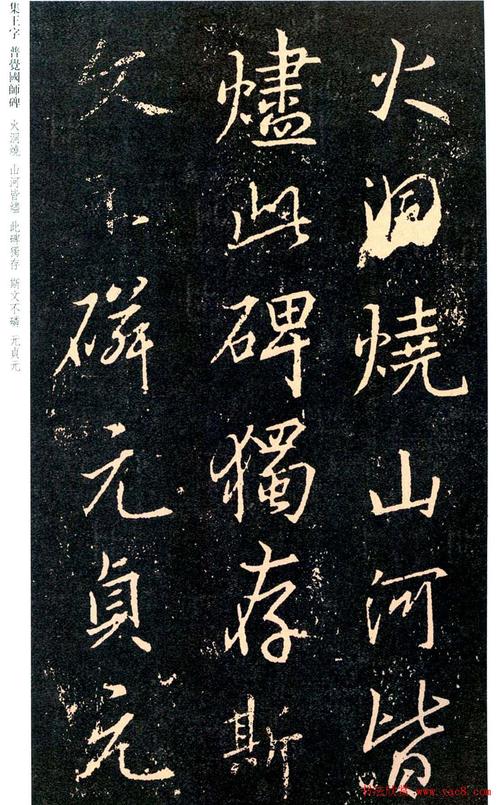 火洞燒山河皆
燼此碑獨存斯
文不磷元貞元
集王字 普覺國師碑 火洞燒 山河皆燼 此碑獨存 斯文不磷 元貞元
书法欣赏 www.yac8.com